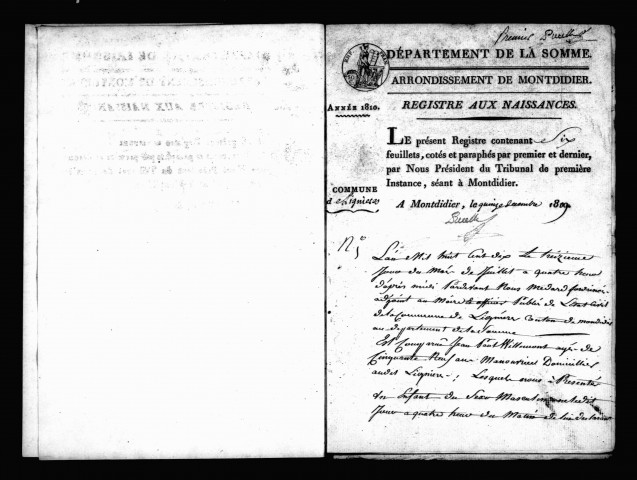 Premier
DÉPARTEMENT DE LA SOMME.
ARRONDISSEMENT DE MONTDIDIER.
ANNÉE 1810.
REGISTRE AUX NAISSANCES.
LE présent Registre contenant Six
feuillets, cotés et paraphés par premier et dernier,
par Nous Président du Tribunal de première
Instance, séant à Montdidier.
COMMUNE
d
A Montdidier, le quinze décembre 1809
N° 1
L'an Mil huit Cent dix Le treizieme
Jour du Mois de Juillet a quatre heure
d'après midi Pardevant Nous Medard
adjoint au Maire officier Publié de L'état Civil
de la Commune de Lignier Canton de mondidier
au departement de la Somme
Est Comparu Jean
Cinquante Neuf ans Manouvrier Domicillié
audit Lignier; Lesquel nous a Presenté
un Enfant du Sexe Masculin
Jour a quatre heure du Matin de